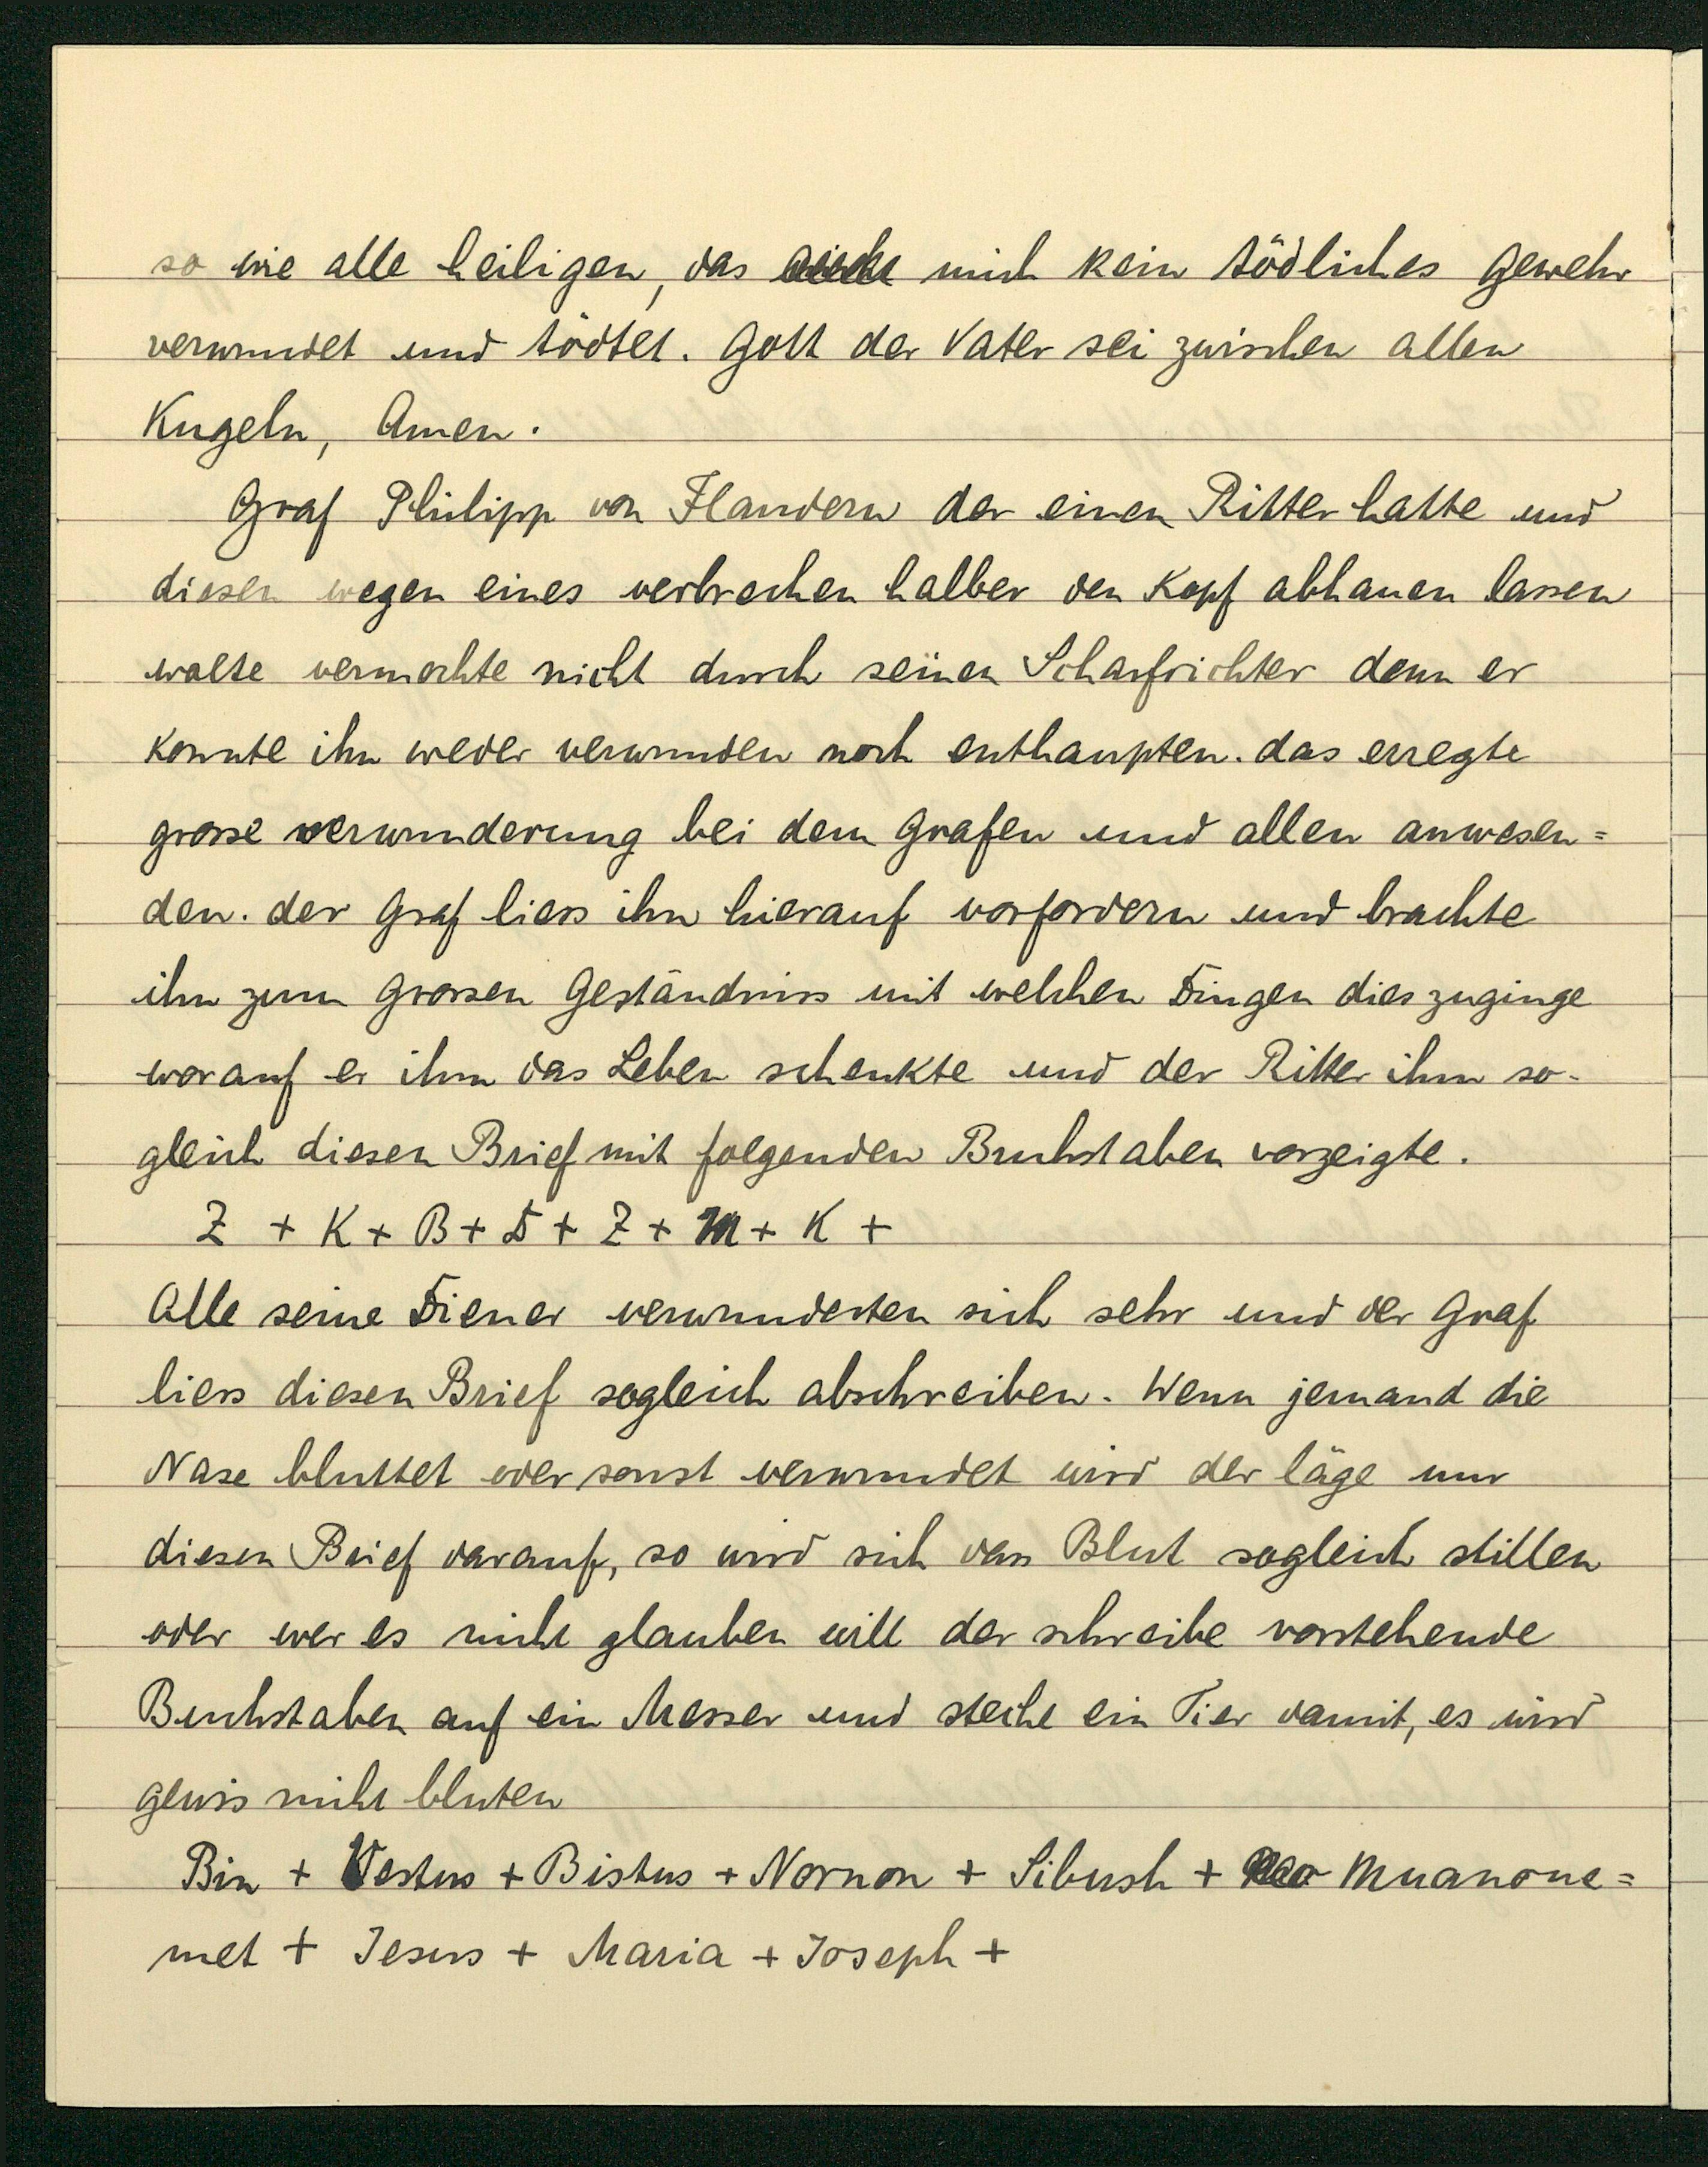 so wie alle heiligen, das mich kein tödliches Gewehr
verwundet und tödtet. Gott der Vater sei zwischen allen
Kugeln, Amen.
Graf Philipp von Flandern der einen Ritter hatte und
diesen wegen eines verbrechen halber den Kopf abhauen lassen
wolte vermochte nicht durch seinen Scharfrichter denn er
konnte ihn weder verwunden noch enthaupten. das erregte
grosse verwunderung bei dem Grafen und allen anwesen=
den. der Graf liess ihn hierauf vorfordern und brachte
ihn zum grossen Geständniss mit welchen Dingen dies zuginge
worauf er ihm das Leben schenkte und der Ritter ihm so-
gleich diesen Brief mit folgenden Buchstaben vorzeigte.
Z + K + B + D + Z + M + K +
Alle seine Diener verwunderten sich sehr und der Graf
liess diesen Brief sogleich abschreiben. Wenn jemand die
Nase bluttet oder sonst verwundet wird der läge nur
diesen Brief darauf, so wird sich das Blut sogleich stillen
oder wer es nicht glauben will der schreibe vorstehende
Buchstaben auf ein Messer und steche ein Tier damit, es wird
gewis nicht bluten
Bin + Vestus + Bistus + Nornon + Sibush + Muanone=
met + Jesus + Maria + Joseph +